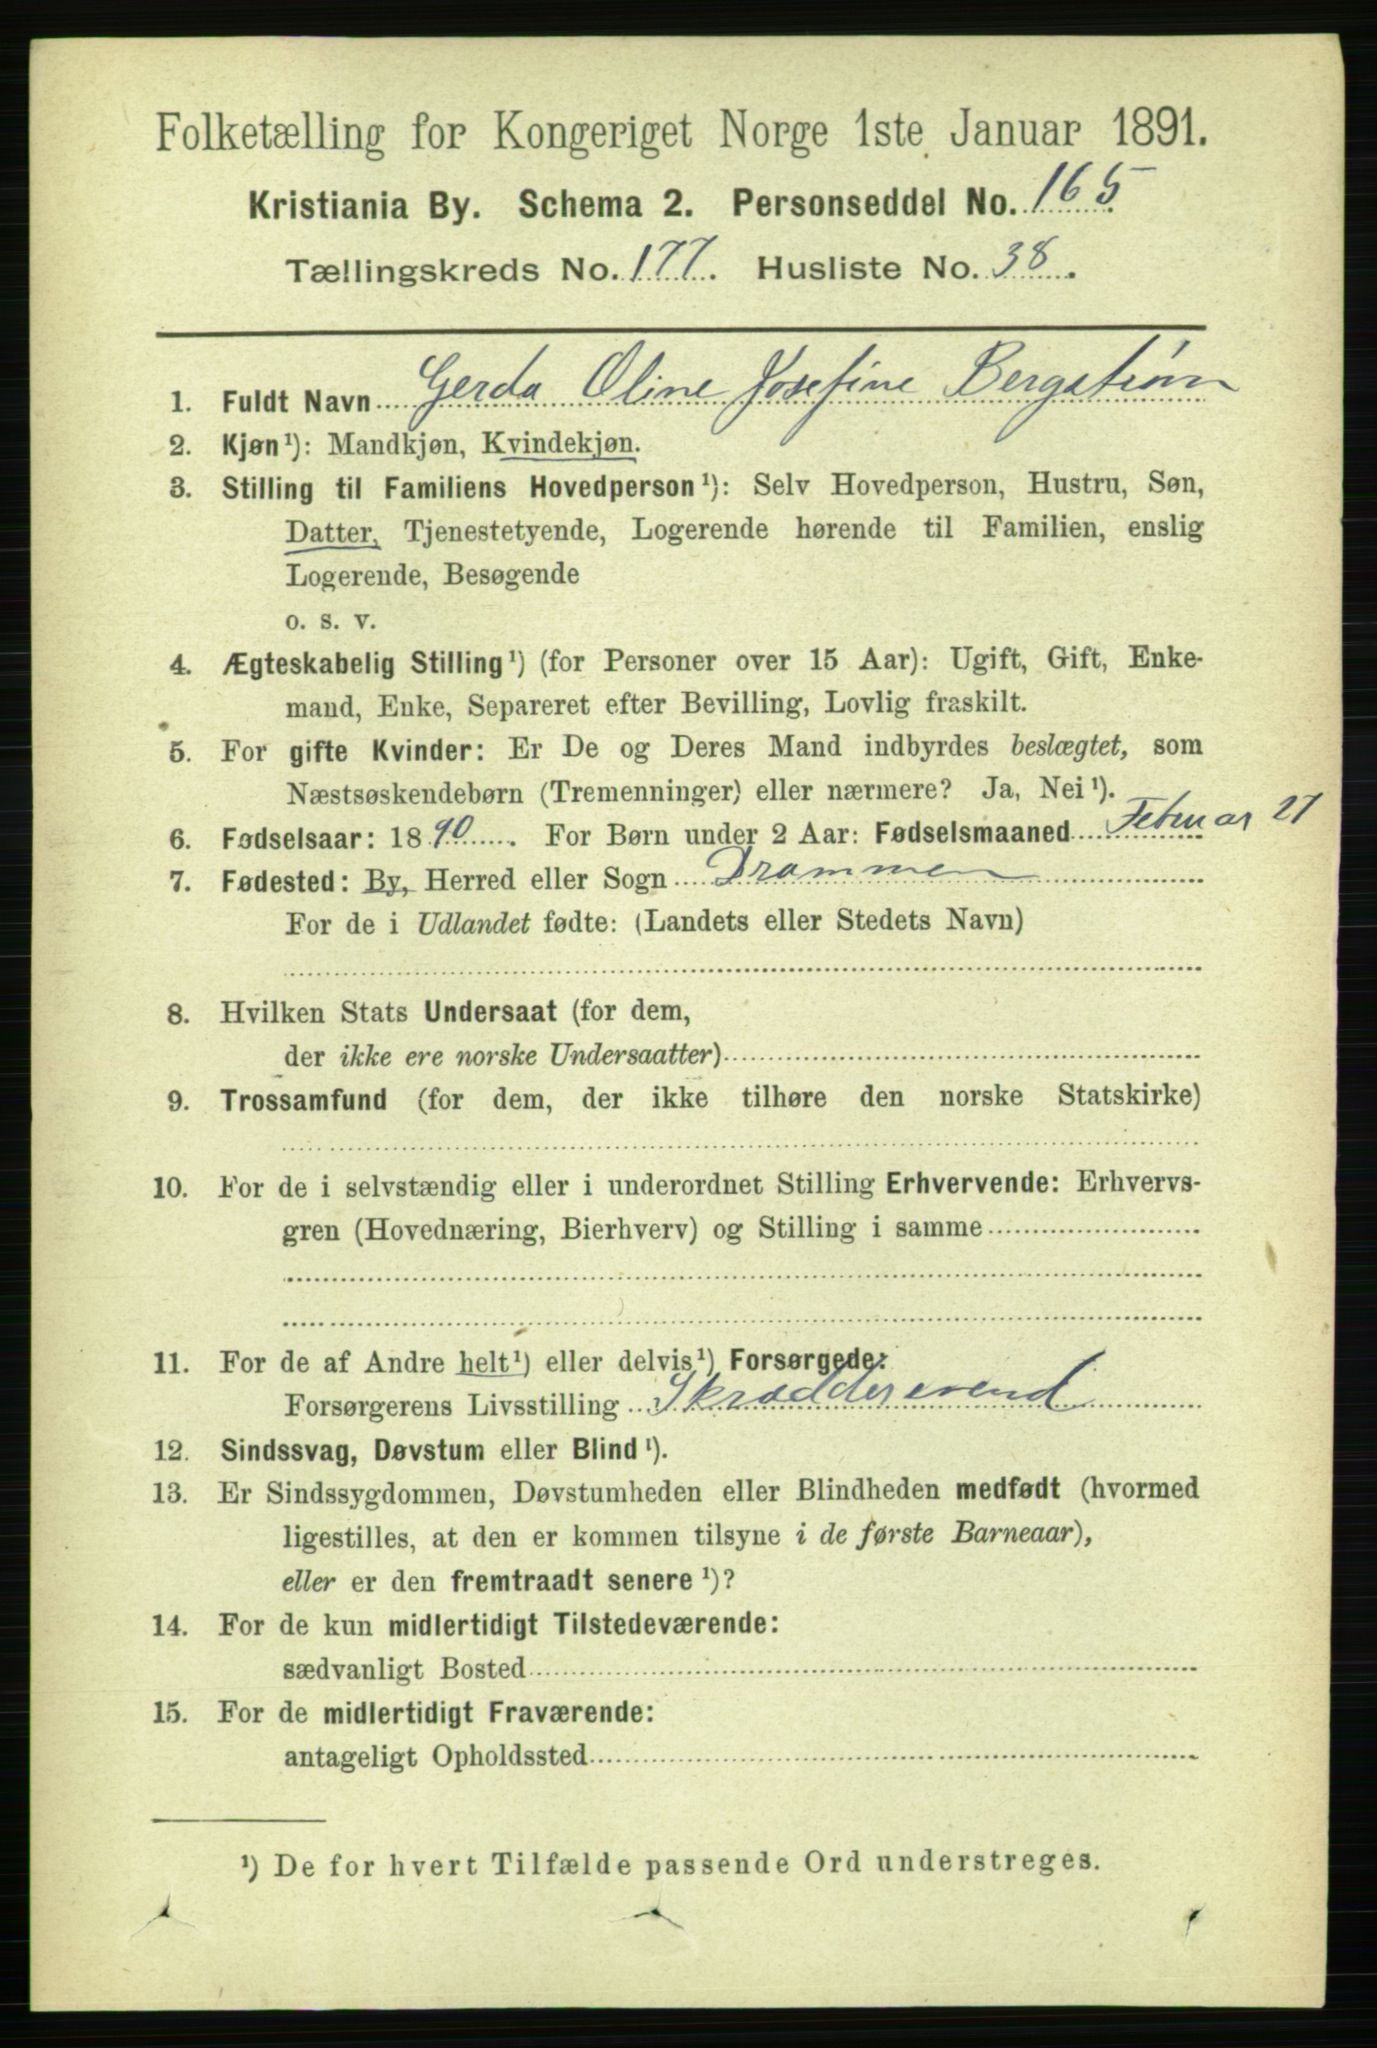 Folketælling for Kongeriget Norge 1ste Januar 1891.
Kristiania By. Schema 2. Personseddel No. 165
Tællingskreds No. 177. Husliste No. 38.
1. Fuldt Navn Gerda Oline Josefine Bergstrøm
2. Kjøn¹): Mandkjøn, Kvindekjøn.
3. Stilling til Familiens Hovedperson¹): Selv Hovedperson, Hustru, Søn,
Datter, Tjenestetyende, Logerende hørende til Familien, enslig
Logerende, Besøgende
o. s. v.
4. Ægteskabelig Stilling¹) (for Personer over 15 Aar): Ugift, Gift, Enke-
mand, Enke, Separeret efter Bevilling, Lovlig fraskilt.
5. For gifte Kvinder: Er De og Deres Mand indbyrdes beslægtet, som
Næstsøskendebørn (Tremenninger) eller nærmere? Ja, Nei¹).
6. Fødselsaar: 1890. For Børn under 2 Aar: Fødselsmaaned Februar 27
7. Fødested: By, Herred eller Sogn Drammen
For de i Udlandet fødte: (Landets eller Stedets Navn)
8. Hvilken Stats Undersaat (for dem,
der ikke ere norske Undersaatter)
9. Trossamfund (for dem, der ikke tilhøre den norske Statskirke)
10. For de i selvstændig eller i underordnet Stilling Erhvervende: Erhvervs-
gren (Hovednæring, Bierhverv) og Stilling i samme
11. For de af Andre helt¹) eller delvis¹) Forsørgede:
Forsørgerens Livsstilling Skræddersvend
12. Sindssvag, Døvstum eller Blind¹).
13. Er Sindssygdommen, Døvstumheden eller Blindheden medfødt (hvormed
ligestilles, at den er kommen tilsyne i de første Barneaar),
eller er den fremtraadt senere¹)?
14. For de kun midlertidigt Tilstedeværende:
sædvanligt Bosted
15. For de midlertidigt Fraværende:
antageligt Opholdssted
¹) De for hvert Tilfælde passende Ord understreges.